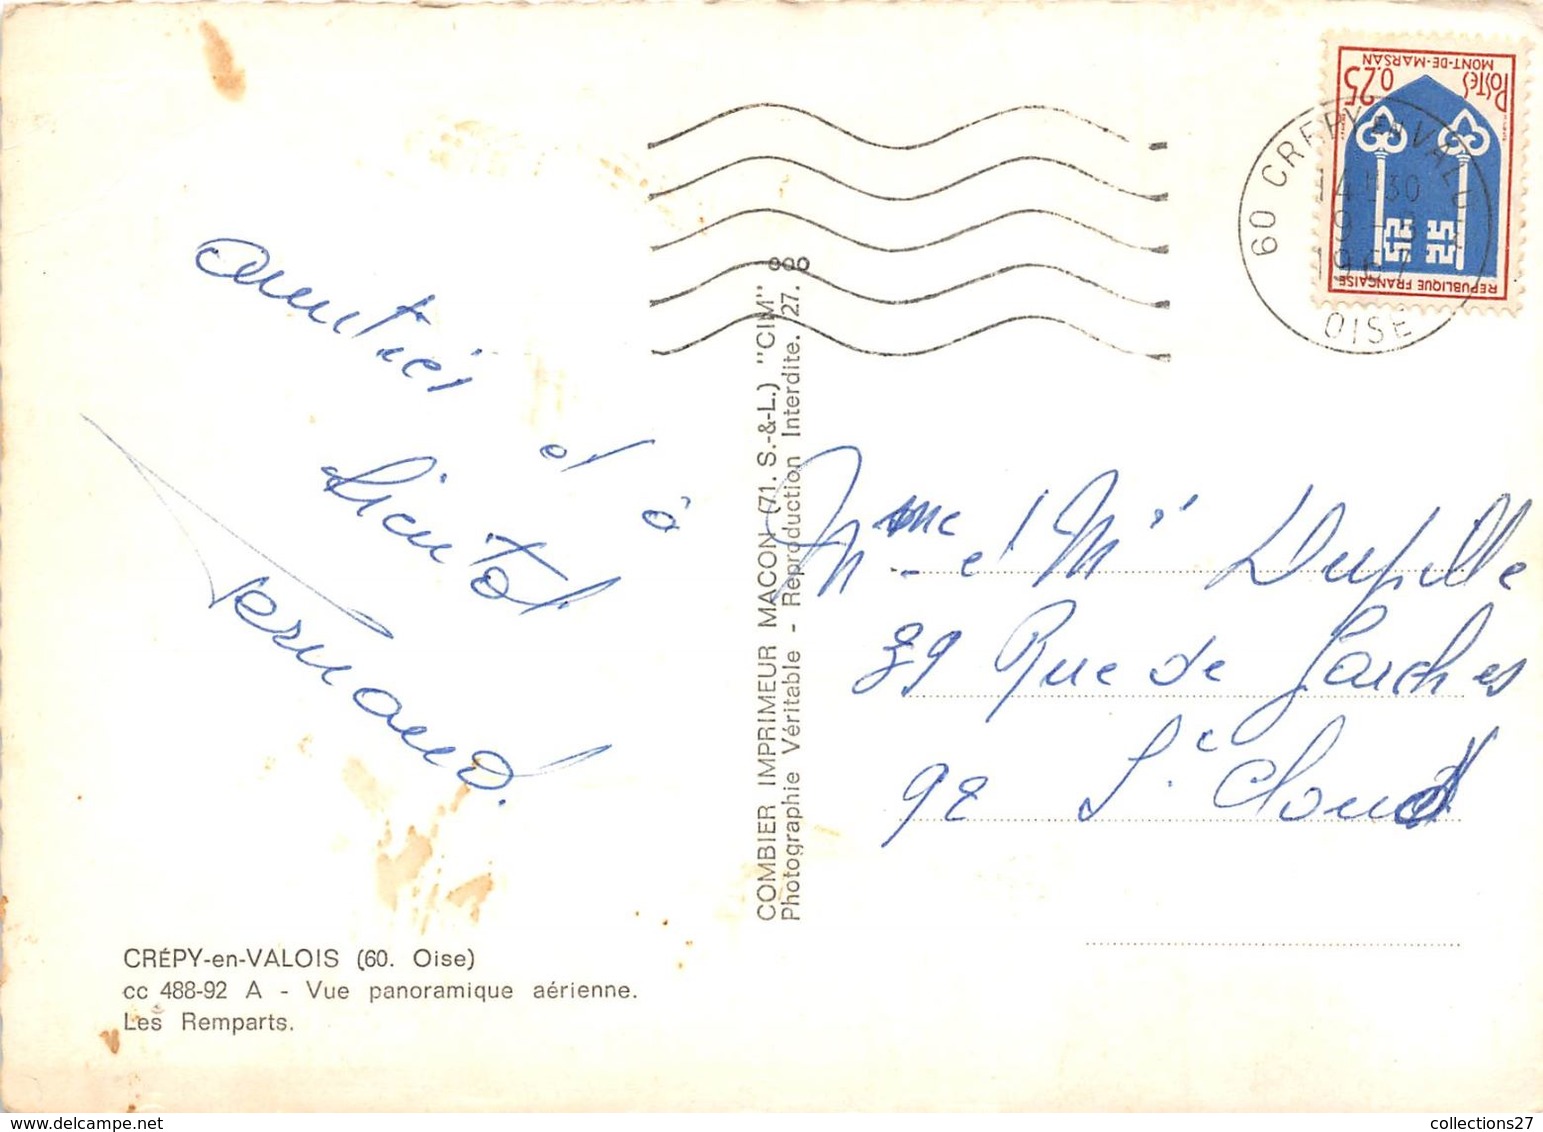 amitiés
et à
bientot
Fernand.
CRÉPY-en-VALOIS (60. Oise)
cc 488-92 A - Vue panoramique aérienne.
Les Remparts.
COMBIER IMPRIMEUR MACON (71. S.-&-L.) "CIM"
Photographie Véritable - Reproduction Interdite. 27.
POSTES 0.25
MONT-DE-MARSAN
REPUBLIQUE FRANÇAISE
60 CREPY EN VALOIS
14 H30
1967
OISE
Mme et Mr Dupille
39 Rue de Garches
92 St Cloud
collections27